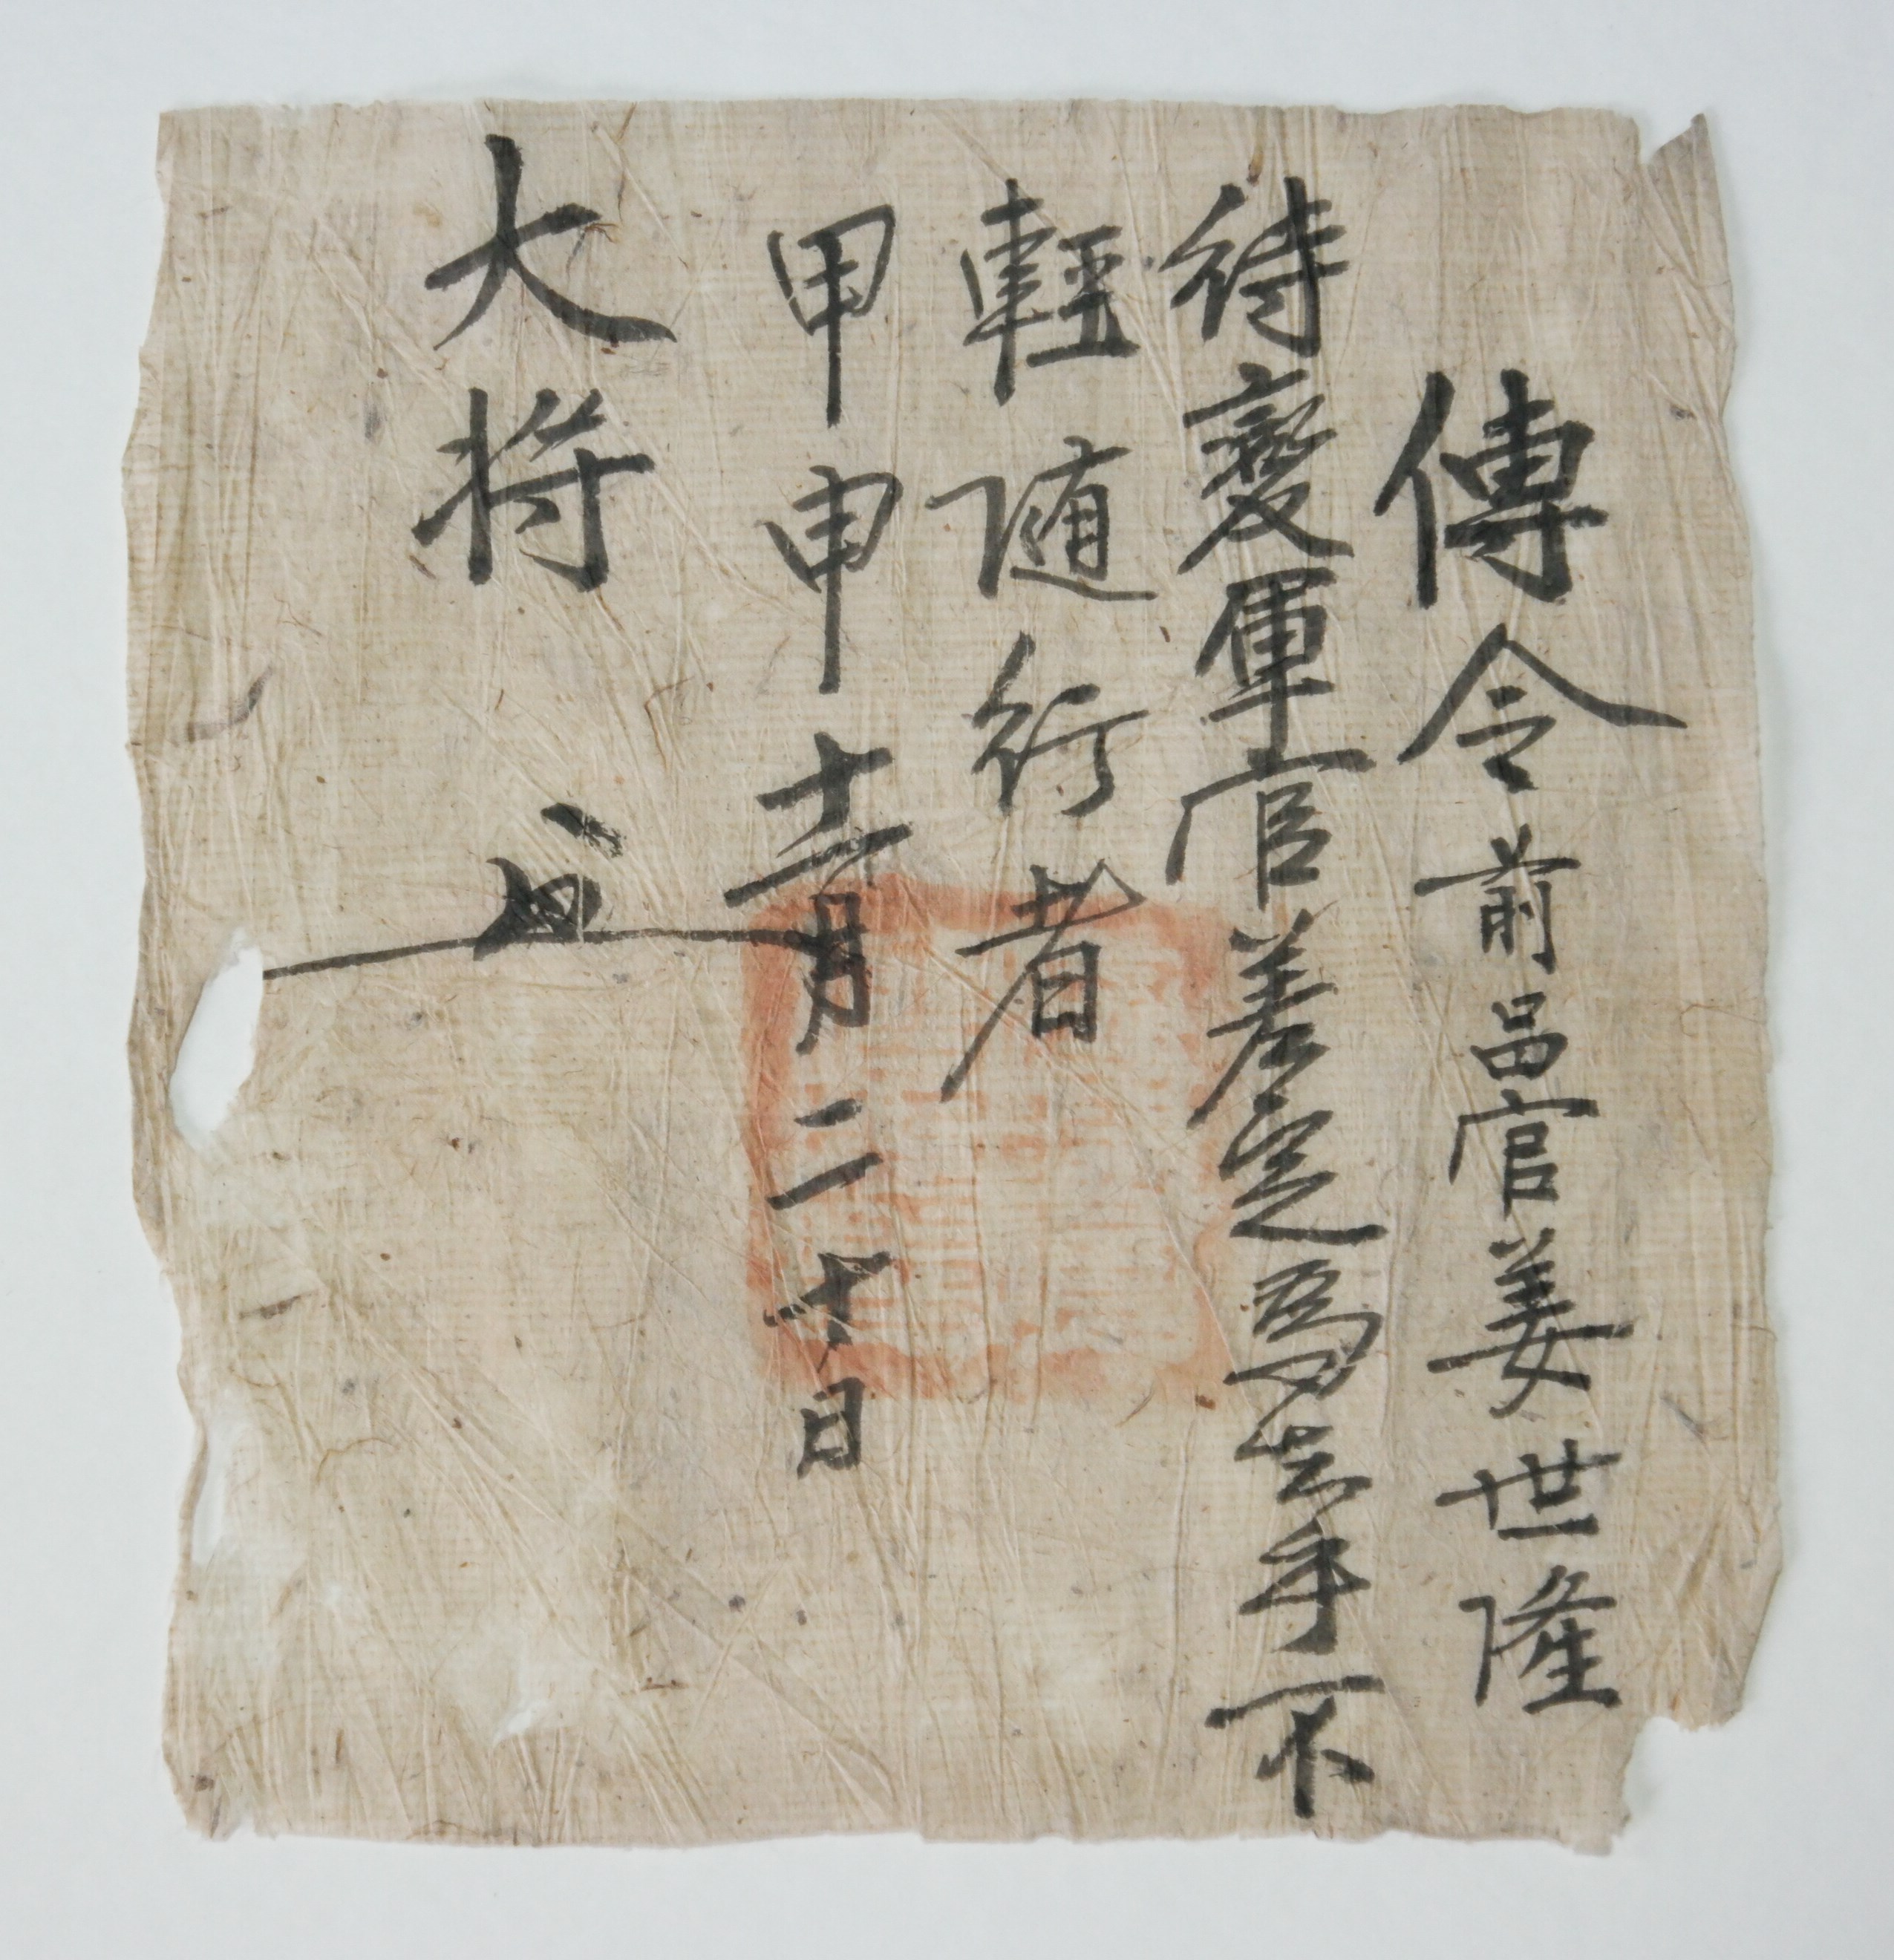 傳令前邑官姜世隆
待變軍官差定爲去乎不
輕随行者
甲申十二月二十日
大将